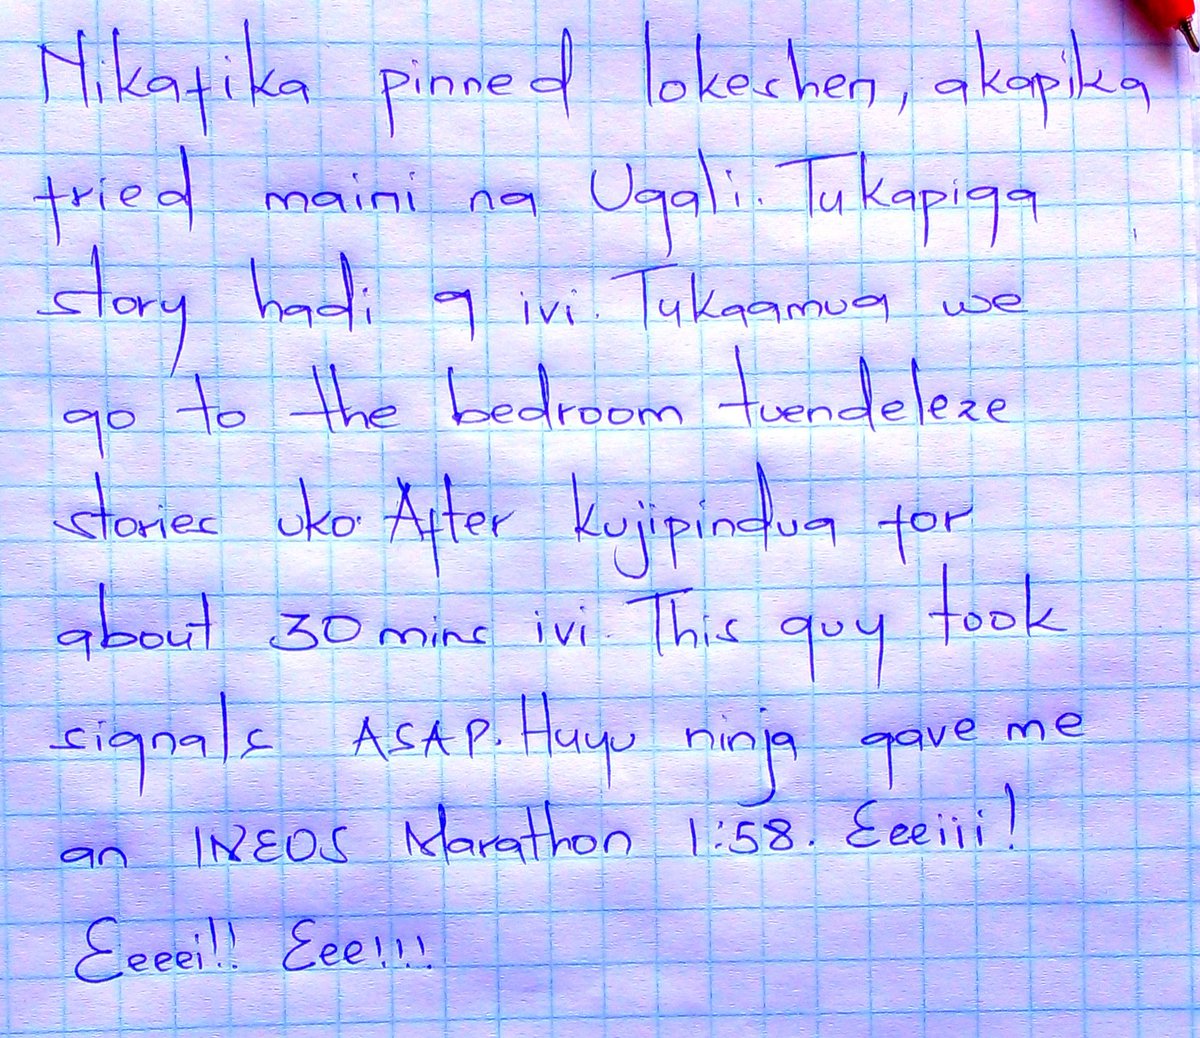 Nikafika pinned lokeshen, akapika
fried maini na Ugali. Tukapiga
story hadi 9 ivi. Tukaamua we
go to the bedroom tuendeleze
stories uko. After kujipindua for
about 30 mins ivi. This guy took
signals ASAP. Huyu ninja gave me
an INEOS Marathon 1:58. Eeeiii!
Eeeei!! Eee!!!